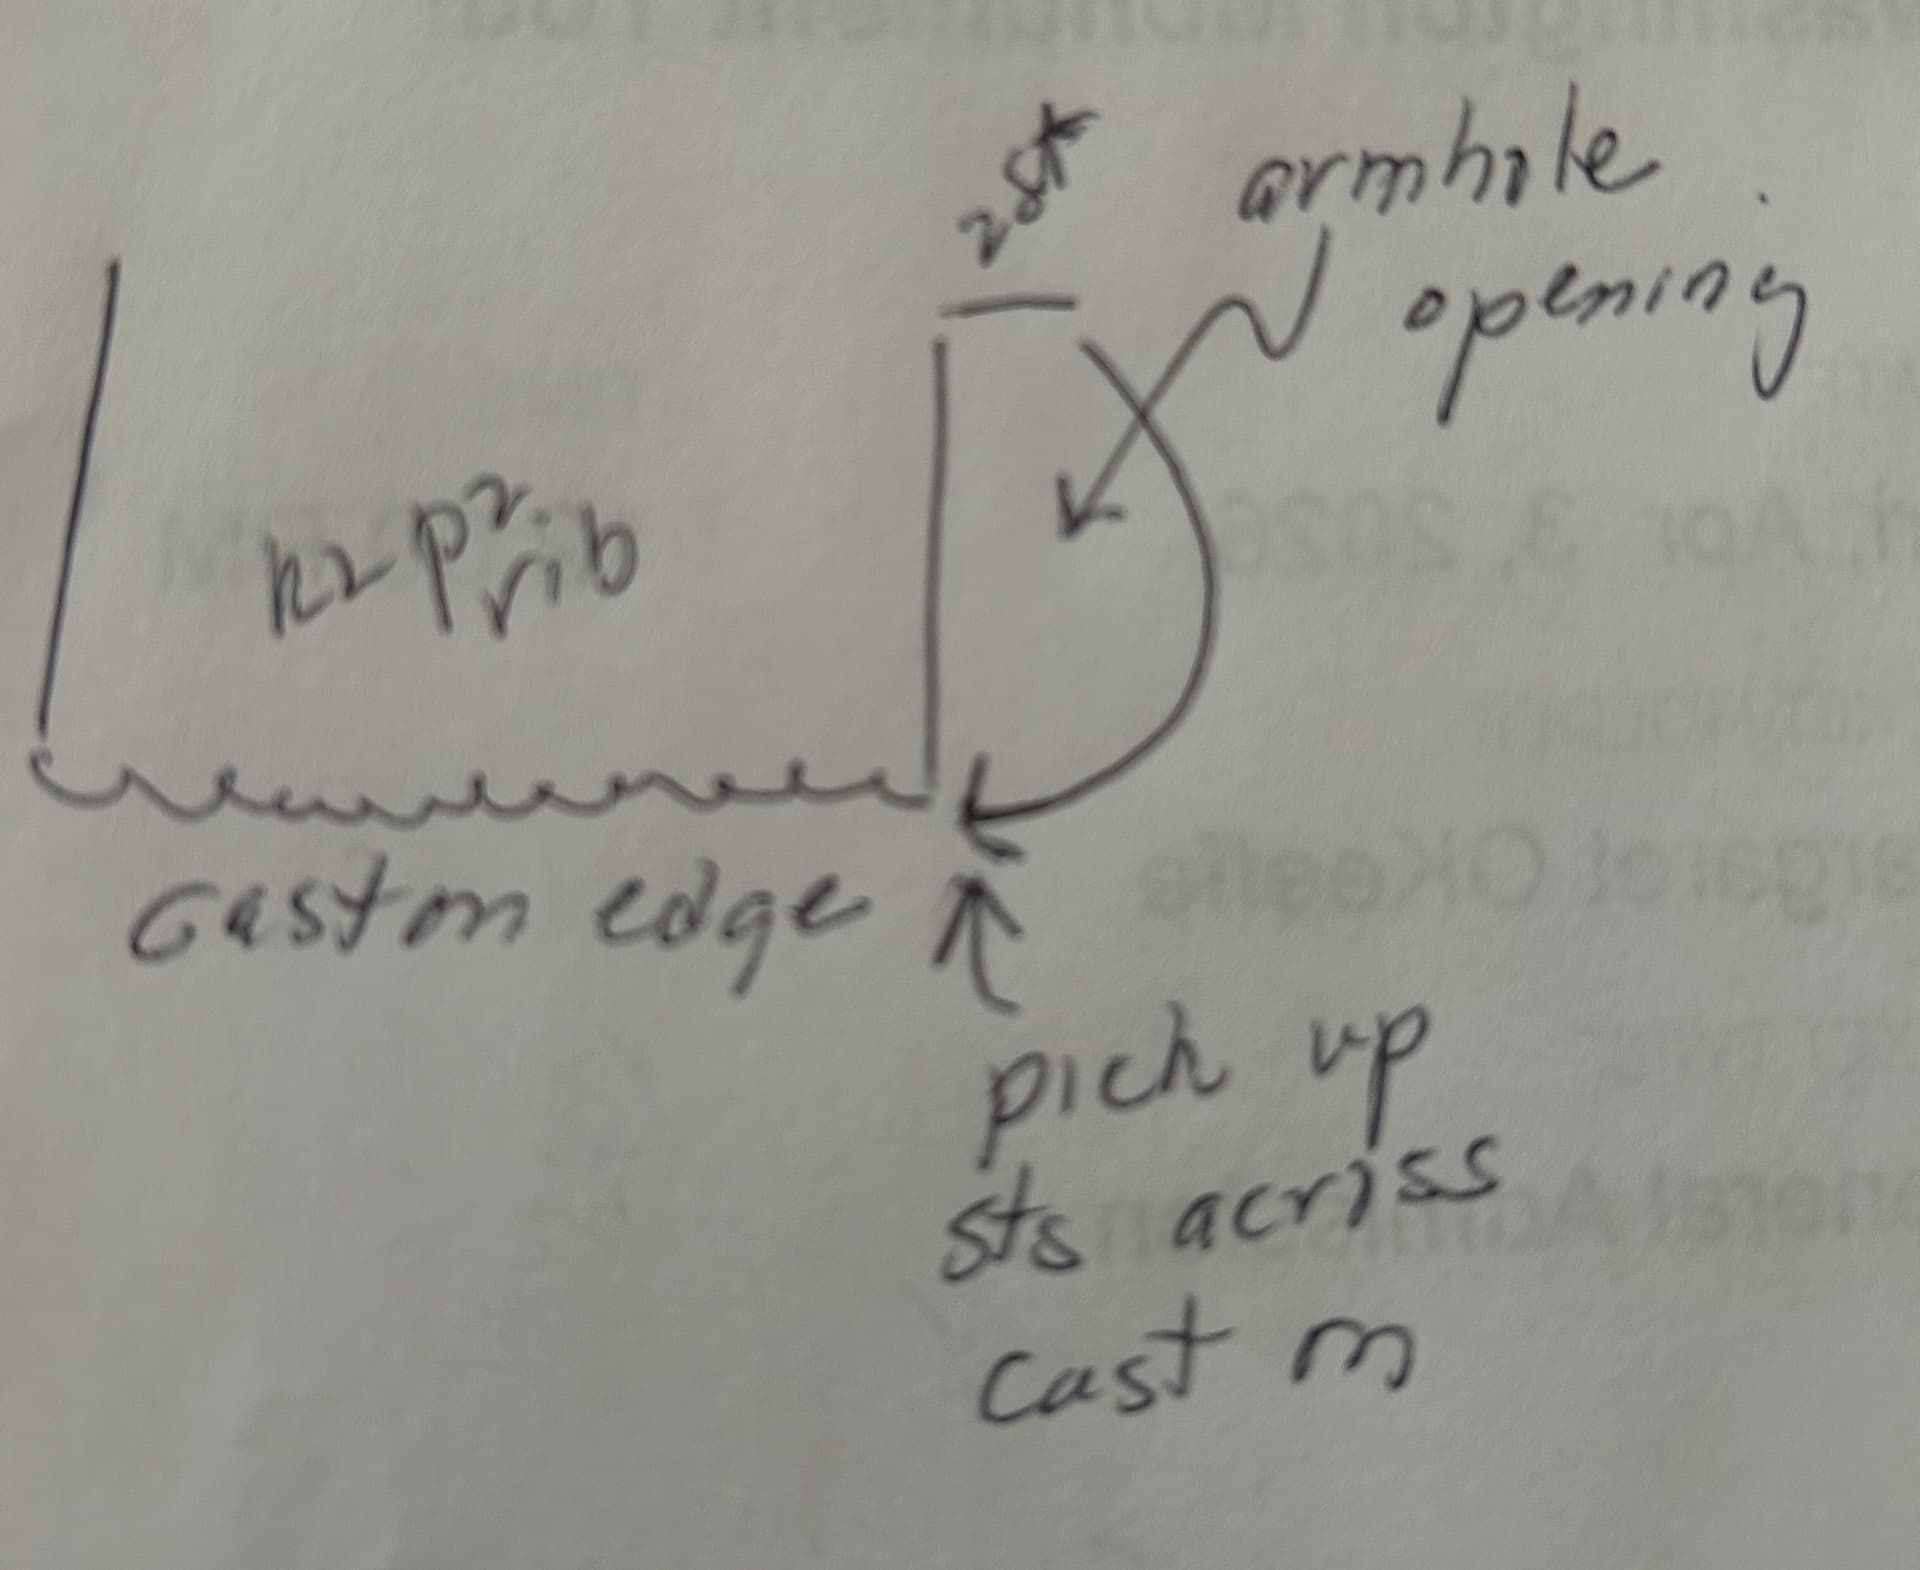 armhole
opening
k2 p2 rib
cast on edge
pick up
sts acriss
cast on